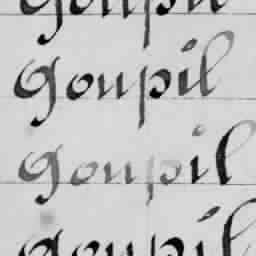 goupil
goupil
goupil
goupil